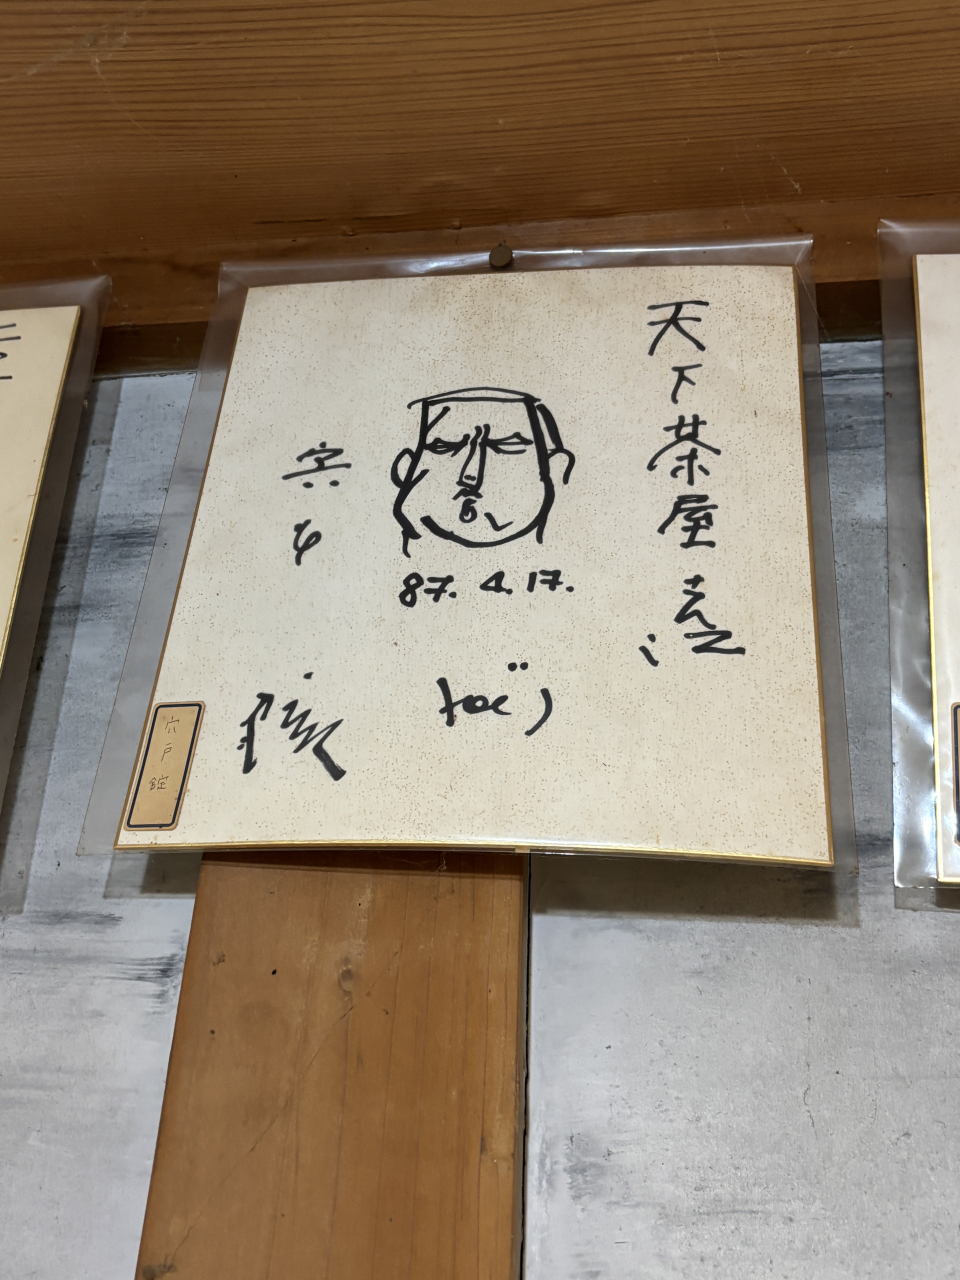 天下茶屋さん江
87. 4. 17.
宍戸
錠
joe
宍戸錠